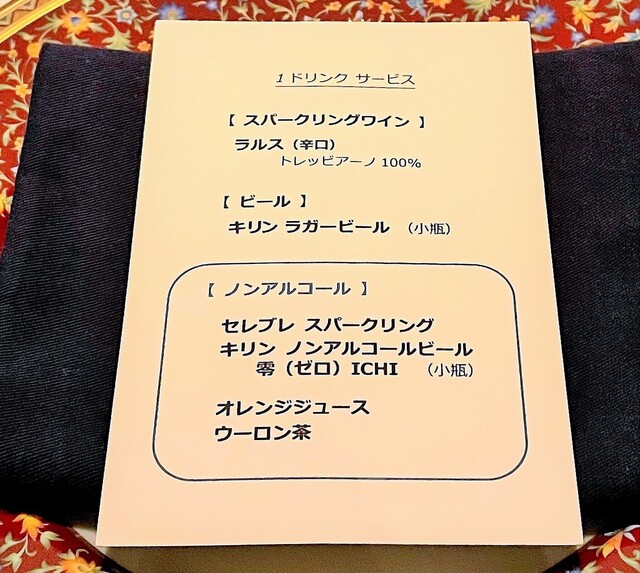 1ドリンク サービス
【 スパークリングワイン 】
ラルス（辛口）
トレッビアーノ 100%
【 ビール 】
キリン ラガービール （小瓶）
【 ノンアルコール 】
セレブレ スパークリング
キリン ノンアルコールビール
零（ゼロ）ICHI （小瓶）
オレンジジュース
ウーロン茶